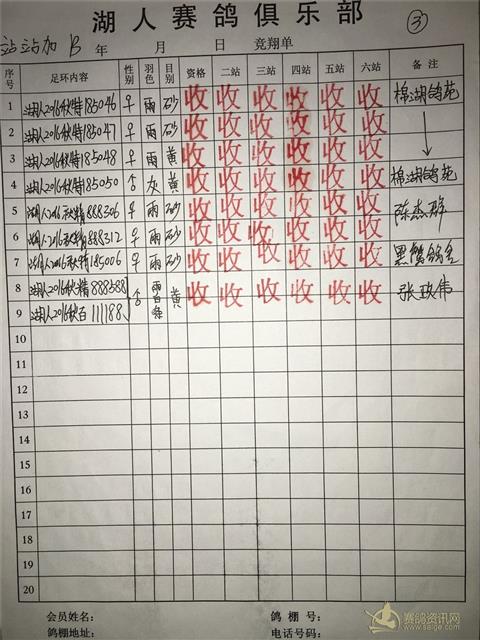 湖人赛鸽俱乐部
③
站站加 B 年 月 日 竞翔单
序号 足环内容 性别 羽色 目别 资格 二站 三站 四站 五站 六站 备注
1 湖人2016秋特185046 ♀ 雨 砂 收 收 收 收 收 收 棉湖鸽苑
2 湖人2016秋特185047 ♀ 雨 砂 收 收 收 收 收 收 ↓
3 湖人2016秋特185048 ♀ 雨 黄 收 收 收 收 收 收
4 湖人2016秋特185050 灰 黄 收 收 收 收 收 收 棉湖鸽苑
5 湖人2016秋精888306 ♀ 雨 砂 收 收 收 收 收 收 陈杰群
6 湖人2016秋精888312 ♀ 雨 砂 收 收 收 收 收 收
7 湖人2016秋特185006 ♀ 雨 砂 收 收 收 收 收 收 黑鹰鸽舍
8 湖人2016秋精888588 雨白条 黄 收 收 收 收 收 收 张政伟
9 湖人2016秋百111188
10
11
12
13
14
15
16
17
18
19
20
会员姓名： 鸽棚号：
鸽棚地址： 电话号码：
赛鸽资讯网
www.saige.com